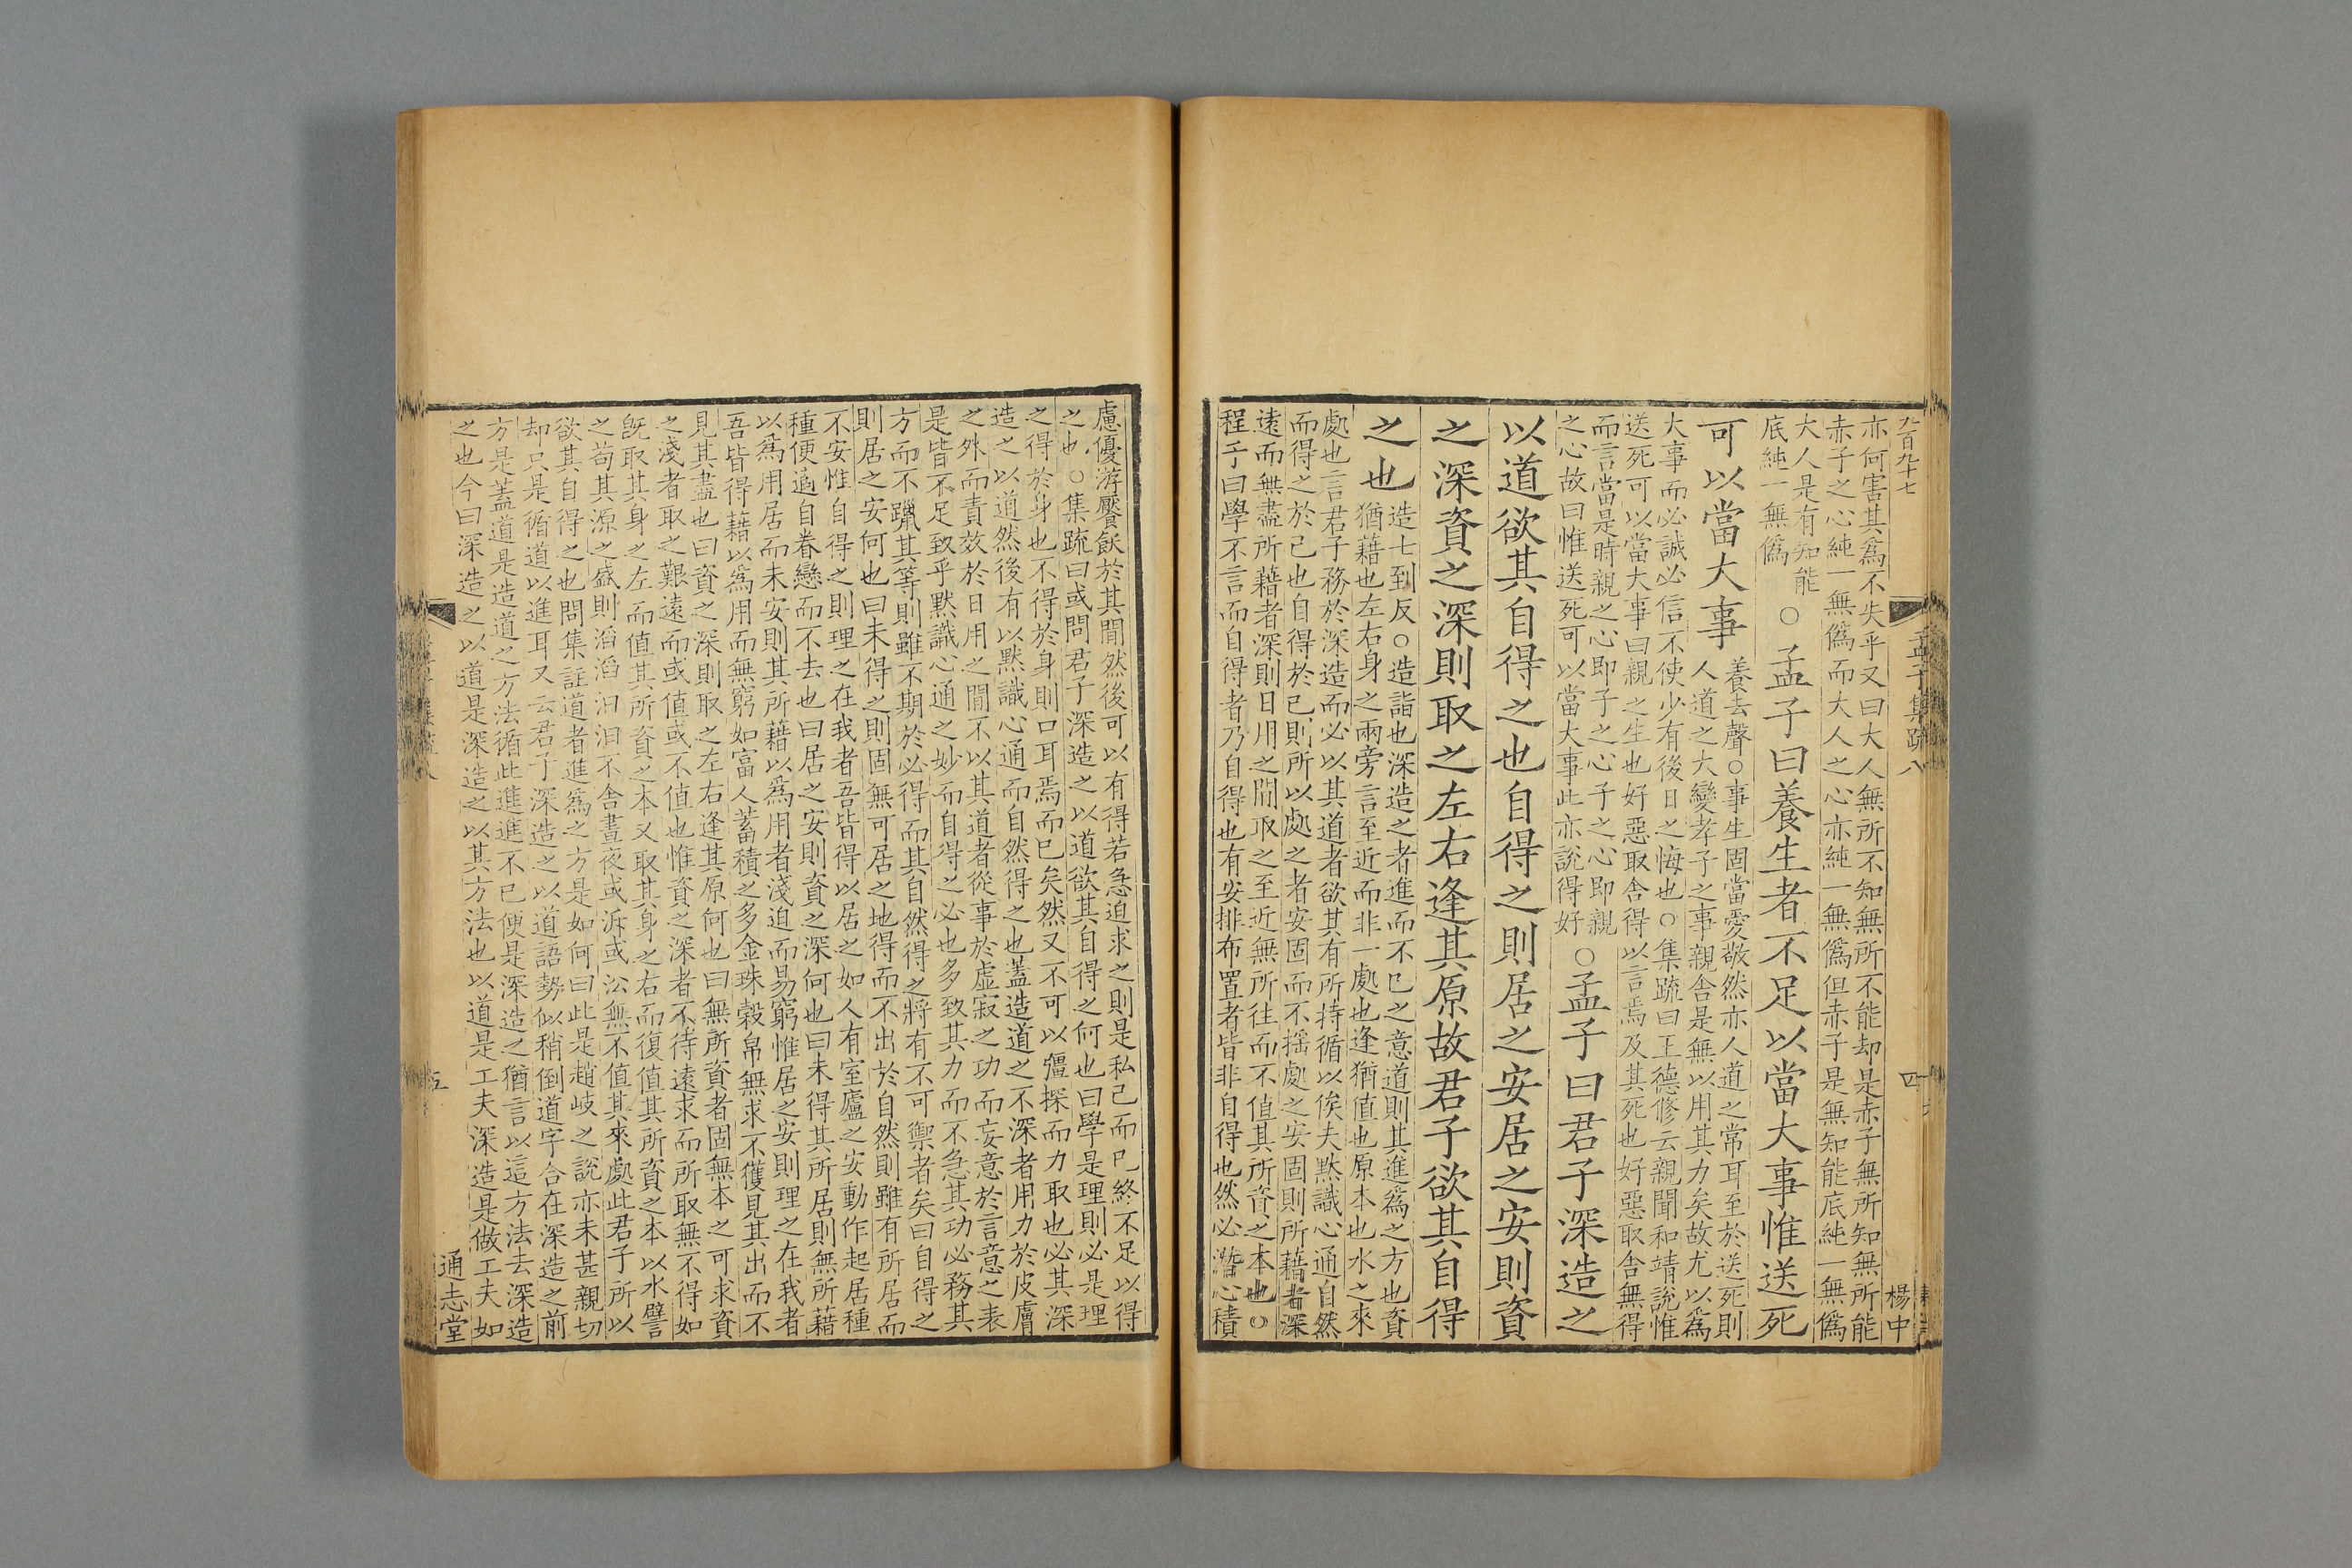 九百九十七
孟子集疏八
四
楊中
亦何害其爲不失乎又曰大人無所不知無所不能却是赤子無所知無所能
赤子之心純一無僞而大人之心亦純一無僞但赤子是無知能底純一無僞
大人是有知能
底純一無僞
○孟子曰養生者不足以當大事惟送死
可以當大事
養去聲○事生固當愛敬然亦人道之常耳至於送死則
人道之大變孝子之事親舍是無以用其力矣故尤以爲
大事而必誠必信不使少有後日之悔也○集疏曰王德修云親聞和靖說惟
送死可以當大事曰親之生也好惡取舍得以言焉及其死也好惡取舍無得
而言當是時親之心即子之心子之心即親
之心故曰惟送死可以當大事此亦說得好
○孟子曰君子深造之
以道欲其自得之也自得之則居之安居之安則資
之深資之深則取之左右逢其原故君子欲其自得
之也
造七到反○造詣也深造之者進而不已之意道則其進爲之方也資
猶藉也左右身之兩旁言至近而非一處也逢猶值也原本也水之來
處也言君子務於深造而必以其道者欲其有所持循以俟夫默識心通自然
而得之於己也自得於己則所以處之者安固而不搖處之安固則所藉者深
遠而無盡所藉者深則日用之間取之至近無所往而不值其所資之本也○
程子曰學不言而自得者乃自得也有安排布置者皆非自得也然必潛心積
慮優游饜飫於其間然後可以有得若急迫求之則是私己而已終不足以得
之也○集疏曰或問君子深造之以道欲其自得之何也曰學是理則必是理
之得於身也不得於身則口耳焉而已矣然又不可以彊探而力取也必其深
造之以道然後有以默識心通而自然得之也蓋造道之不深者用力於皮膚
之外而責效於日用之間不以其道者從事於虛寂之功而妄意於言意之表
是皆不足致乎默識心通之妙而自得之必也多致其力而不急其功必務其
方而不躐其等則雖不期於必得而其自然得之將有不可禦者矣曰自得之
則居之安何也曰未得之則固無可居之地得而不出於自然則雖有所居而
不安惟自得之則理之在我者吾皆得以居之如人有室廬之安動作起居種
種便適自眷戀而不去也曰居之安則資之深何也曰未得其所居則無所藉
以爲用居而未安則其所藉以爲用者淺迫而易窮惟居之安則理之在我者
吾皆得藉以爲用而無窮如富人蓄積之多金珠穀帛無求不獲見其出而不
見其盡也曰資之深則取之左右逢其原何也曰無所資者固無本之可求資
之淺者取之艱遠而或值或不值也惟資之深者不待遠求而所取無不得如
旣取其身之左而值其所資之本又取其身之右而復值其所資之本以水譬
之苟其源之盛則滔滔汩汩不舍晝夜或泝或沿無不值其來處此君子所以
欲其自得之也問集註道者進爲之方是如何曰此是趙岐之說亦未甚親切
却只是循道以進耳又云君子深造之以道語勢似稍倒道字合在深造之前
方是蓋道是造道之方法循此進進不已便是深造之猶言以這方法去深造
之也今曰深造之以道是深造之以其方法也以道是工夫深造是做工夫如
五
通志堂